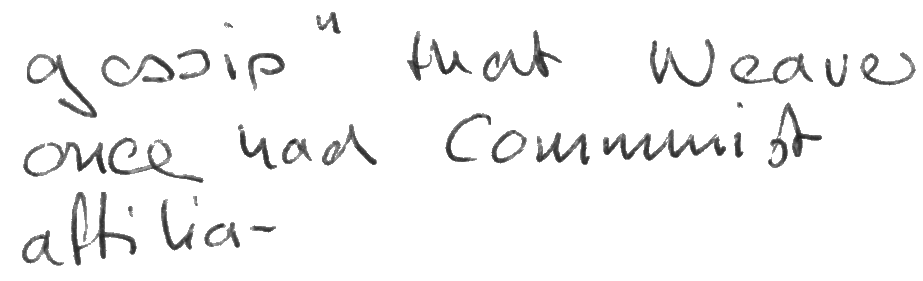 gossip" that Weaver
once had Communist
affilia-